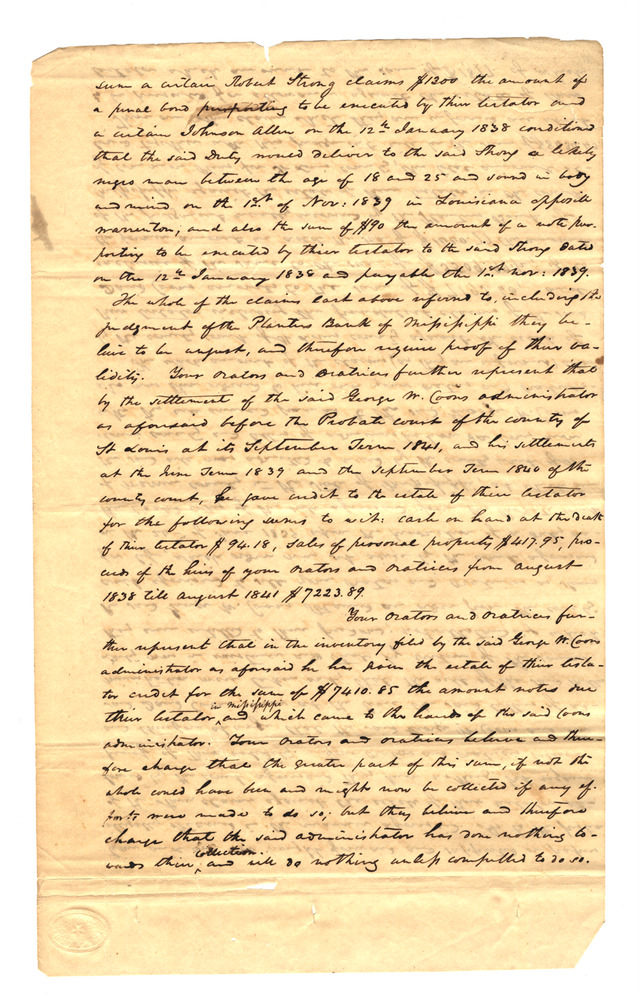 sum a certain Robert Strong claims $1200 the amount of
a penal bond purporting to be executed by their testator and
a certain Johnson Allen on the 12th January 1838 conditioned
that the said Duty would deliver to the said Strong a likely
negro man between the age of 18 and 25 and sound in body
and mind on the 1st of Nov: 1839 in Louisiana opposite
Warrenton, and also the sum of $90 the amount of a note pur-
porting to be executed by their testator to the said Strong dated
on the 12th January 1838 and payable the 1st Nov: 1839.
The whole of the claims last above referred to, including the
judgment of the Planters Bank of Mississippi they be-
lieve to be unjust, and therefore require proof of their va-
lidity. Your orators and oratrices further represent that
by the settlement of the said George W. Coons administrator
as aforesaid before the Probate court of the county of
St Louis at its September Term 1841, and his settlements
at the June Term 1839 and the September Term 1840 of the
county court, he gave credit to the estate of their testator
for the following sums to wit: cash on hand at the death
of their testator $94.18, sales of personal property $417.95, pro-
ceeds of the hires of your orators and oratrices from august
1838 till august 1841 $7223.89.
Your orators and oratrices fur-
ther represent that in the inventory filed by the said George W. Coons
administrator as aforesaid he has given the estate of their testa-
tor credit for the sum of $7410.85 the amount notes due
in Mississippi
their testator, and which came to the hands of the said Coons
administrator. Your orators and oratrices believe and there-
fore charge that the greater part of this sum, if not the
whole could have been and might now be collected if any ef-
forts were made to do so; but they believe and therefore
charge that the said administrator has done nothing to-
collection.
wards their and will do nothing unless compelled to do so.